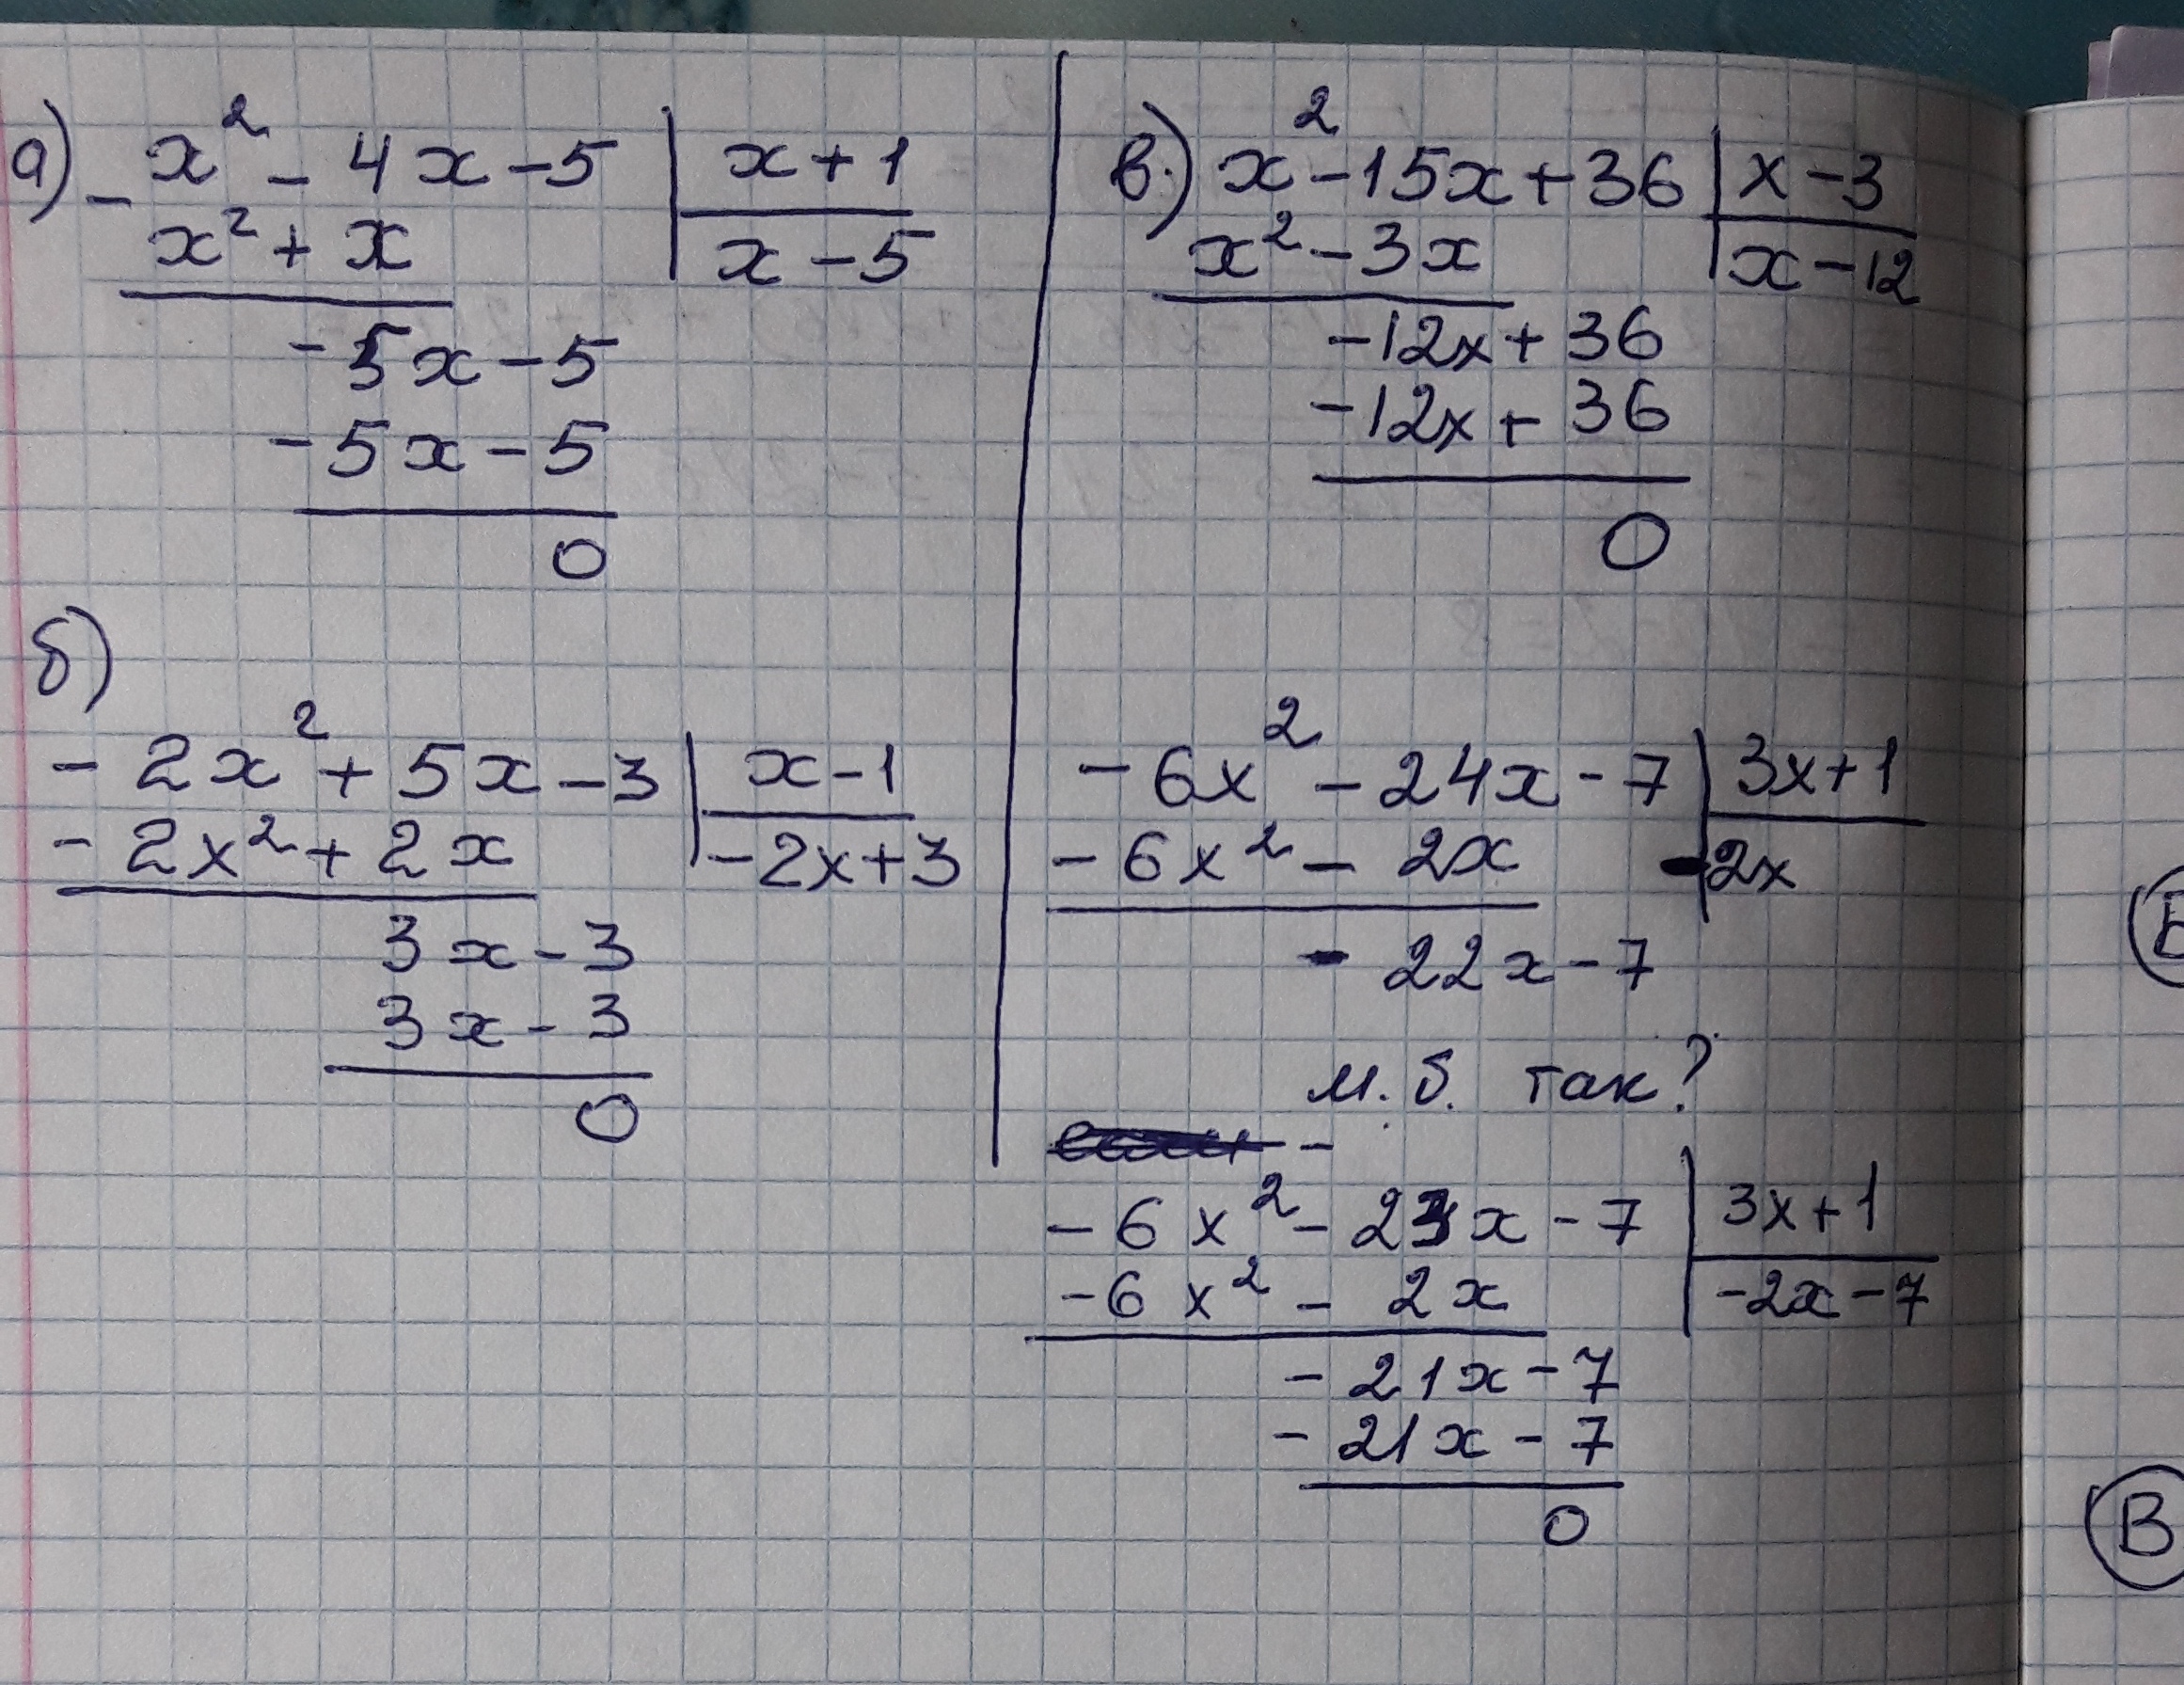 а) x² - 4x - 5 | x + 1
- x² + x | x - 5
-5x - 5
-5x - 5
0
б)
-2x² + 5x - 3 | x - 1
-2x² + 2x | -2x + 3
3x - 3
3x - 3
0
в.) x² - 15x + 36 | x - 3
x² - 3x | x - 12
-12x + 36
-12x + 36
0
-6x² - 24x - 7 | 3x + 1
-6x² - 2x | -2x
- 22x - 7
м.б. так?
-
-6x² - 23x - 7 | 3x + 1
-6x² - 2x | -2x - 7
-21x - 7
-21x - 7
0
В